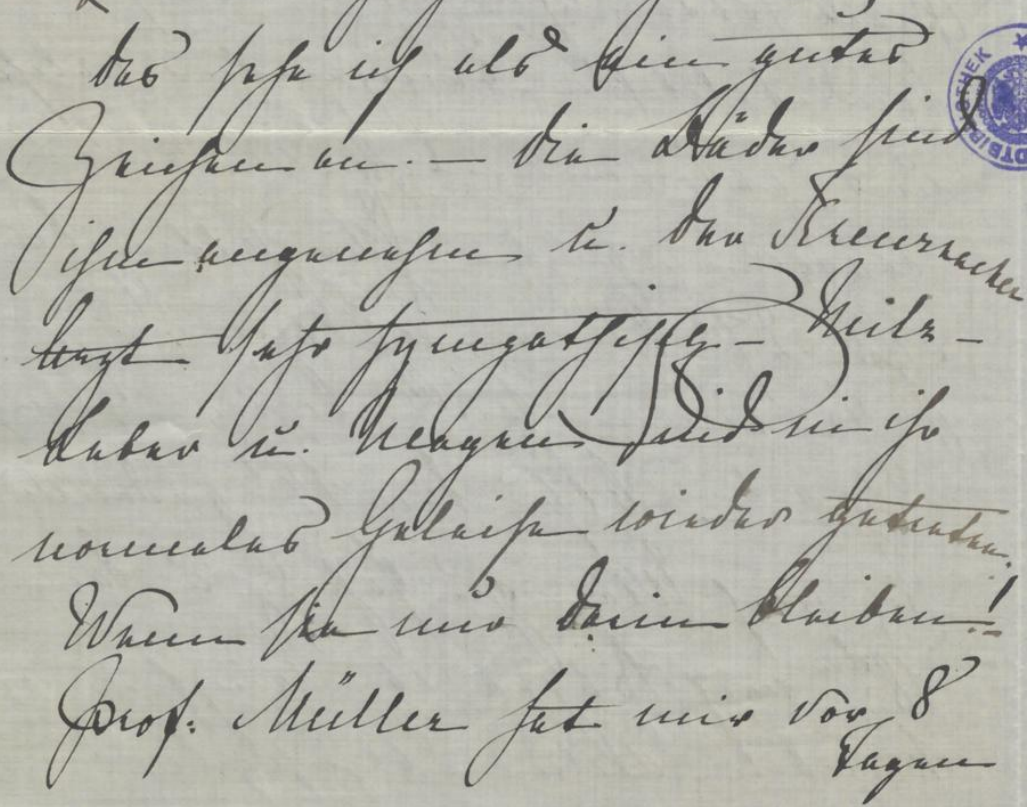 das sehe ich als ein gutes
Zeichen an. – Die Bäder sind
ihm angenehm u. der Kreuznacher
Arzt sehr sympathisch – Milz –
Leber u. Magen sind in ihr
normales Geleise wieder getreten.
Wenn sie nur darin bleiben!
Prof. Müller hat mir vor 8
Tagen